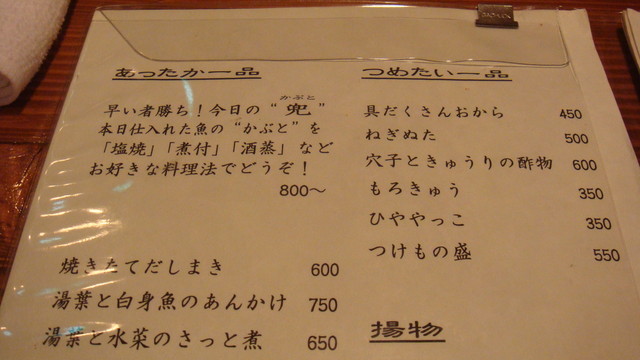 あったか一品
かぶと
早い者勝ち！今日の“兜”
本日仕入れた魚の“かぶと”を
「塩焼」「煮付」「酒蒸」など
お好きな料理法でどうぞ！
800～
焼きたてだしまき 600
湯葉と白身魚のあんかけ 750
湯葉と水菜のさっと煮 650
つめたい一品
具だくさんおから 450
ねぎぬた 500
穴子ときゅうりの酢物 600
もろきゅう 350
ひややっこ 350
つけもの盛 550
揚物